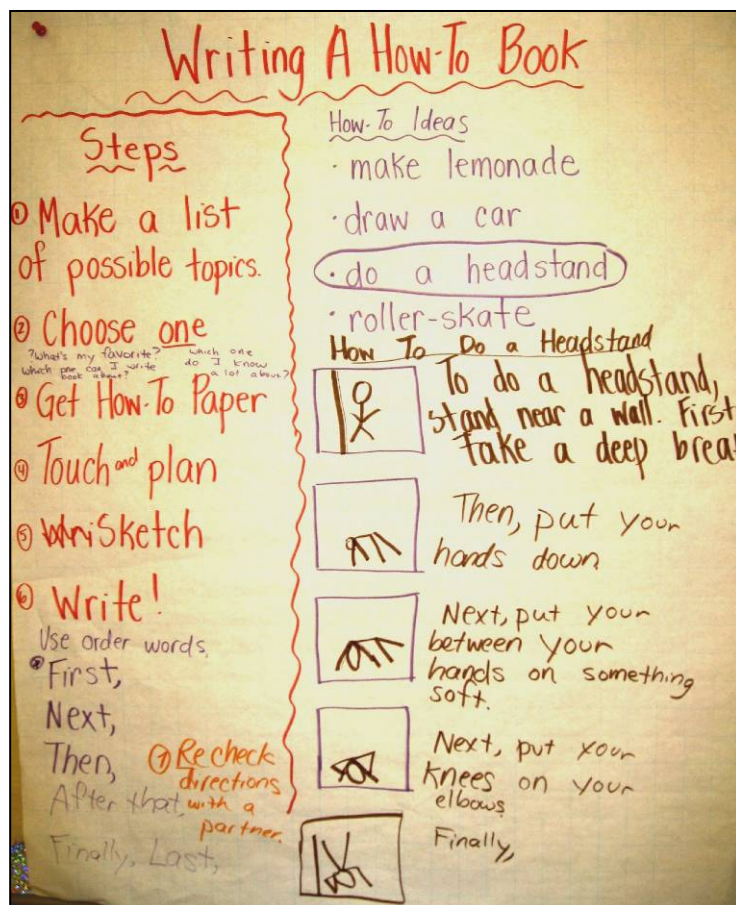 Writing A How-To Book
Steps
① Make a list
of possible topics.
② Choose one
?What's my favorite? which one
which one can I write do I know
book about? a lot about?
③ Get How-To Paper
④ Touch and plan
⑤ Sketch
⑥ Write!
Use order words.
First,
Next,
Then,
After that,
Finally, Last,
⑦ Recheck
directions
with a
partner.
How-To Ideas
· make lemonade
· draw a car
· do a headstand
· roller-skate
How To Do a Headstand
To do a headstand,
stand near a wall. First
take a deep brea
Then, put your
hands down
Next, put your
between your
hands on something
soft.
Next, put your
knees on your
elbows
Finally,